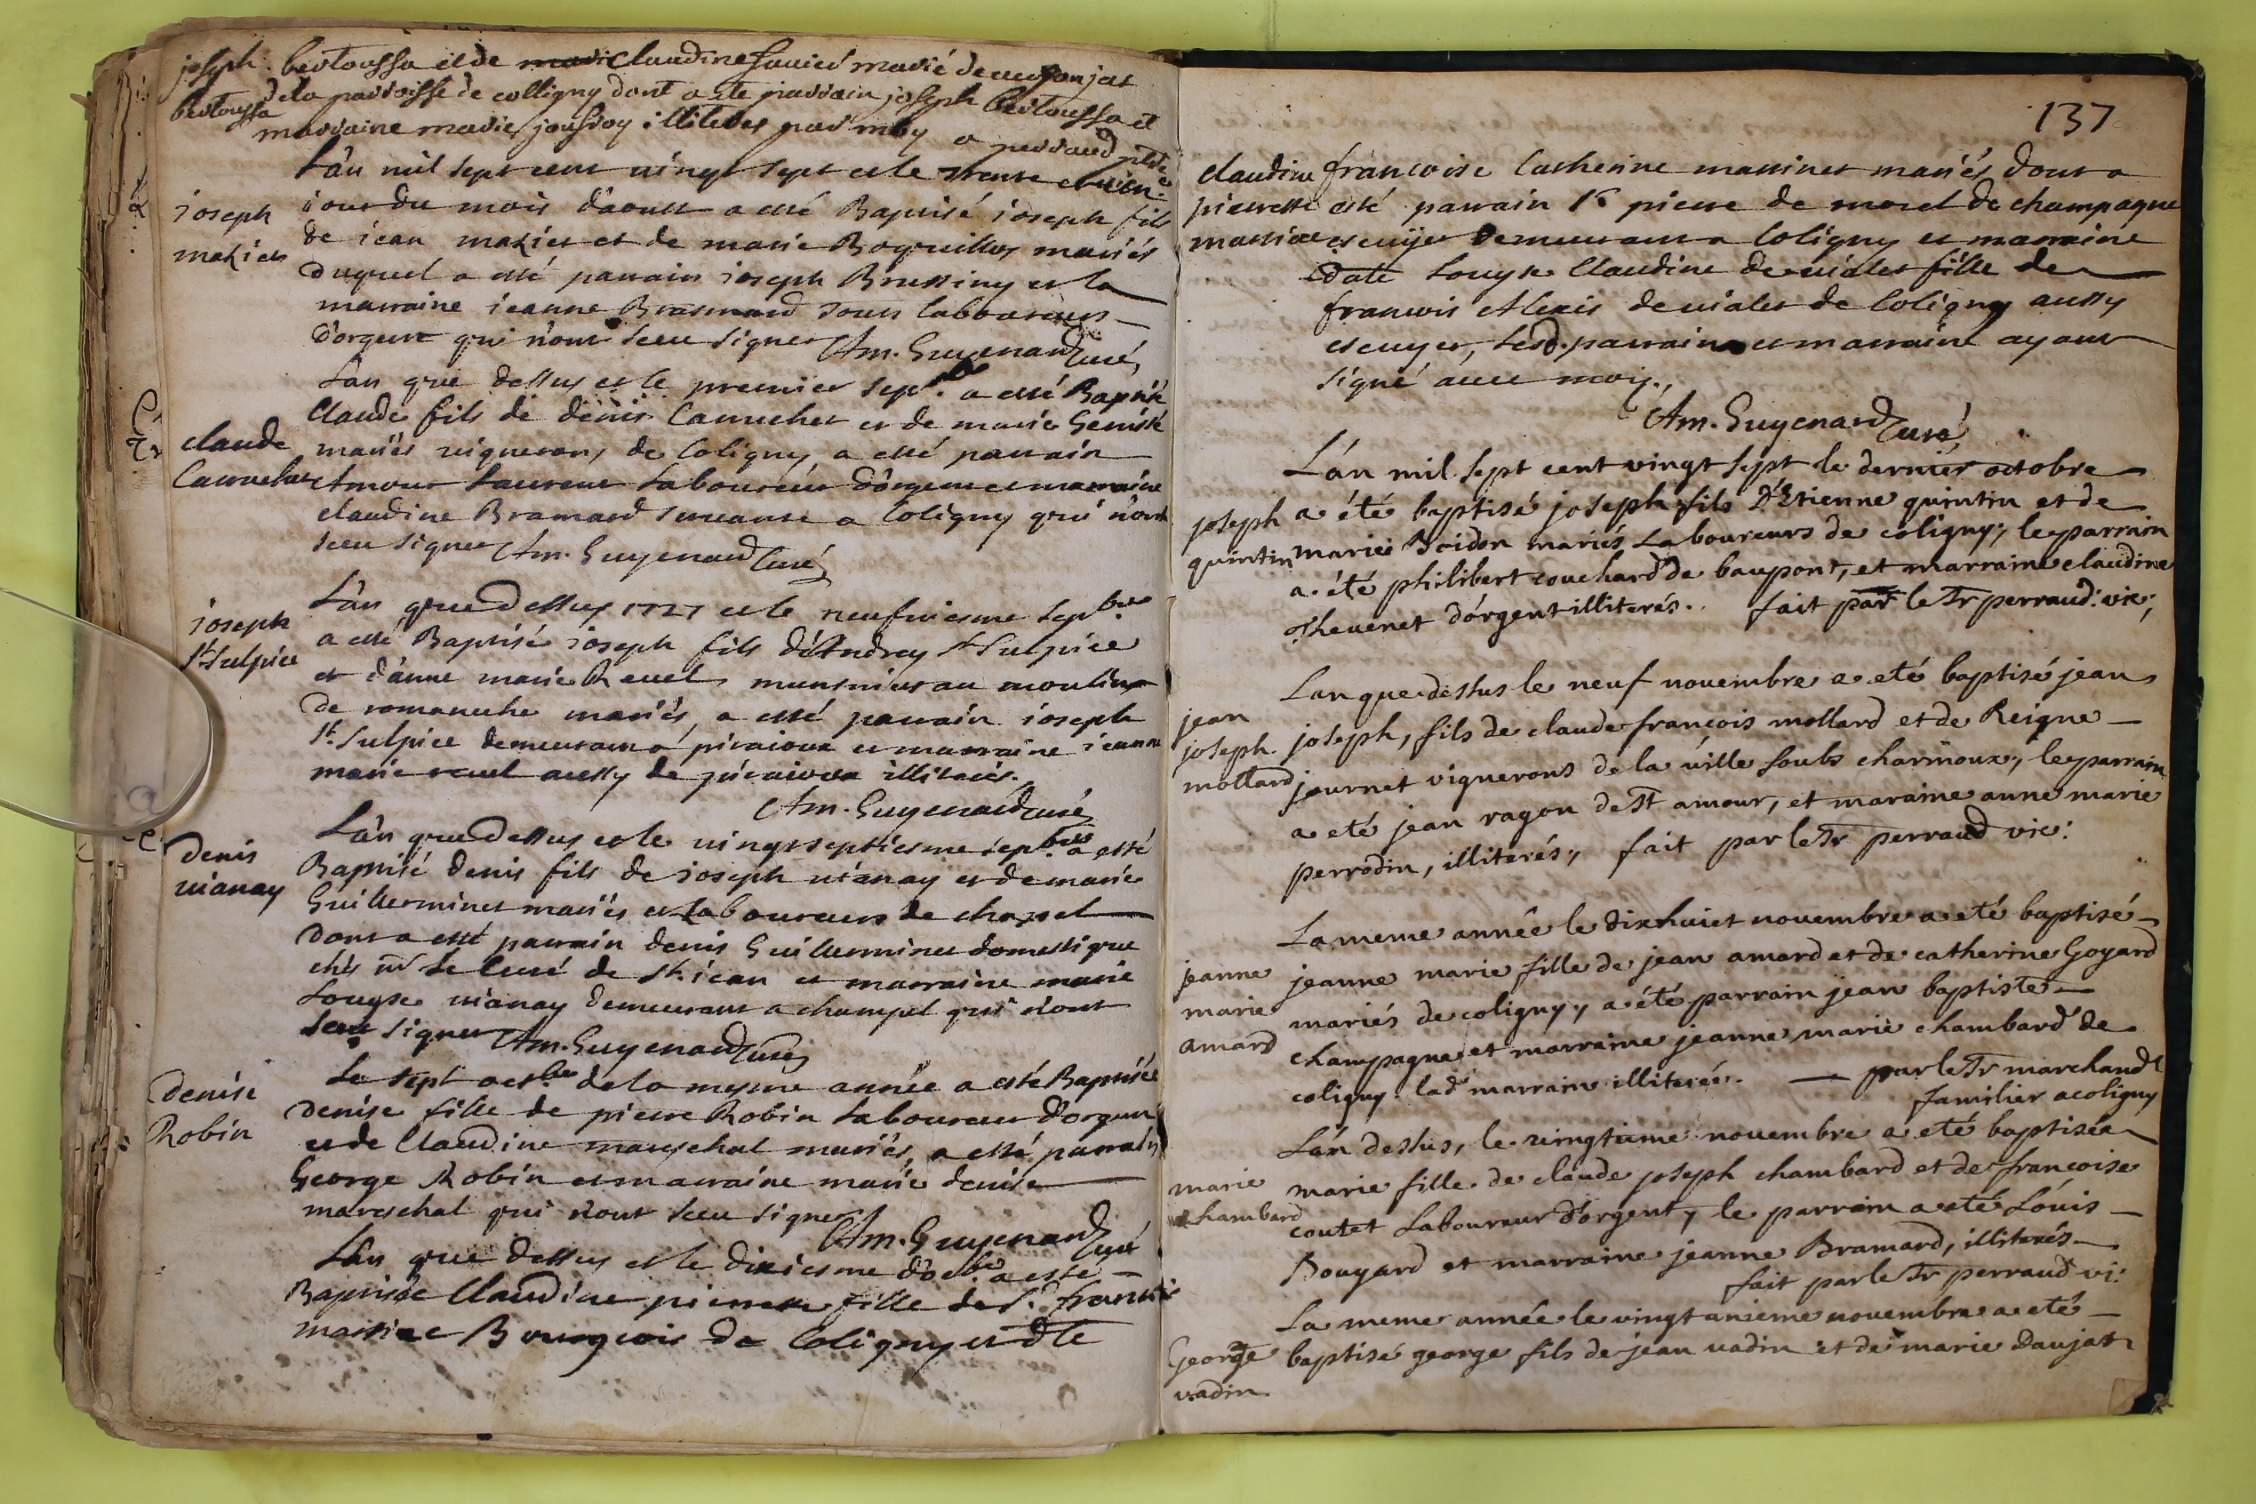 joseph bertoussa et de marie claudine marié de
bertoussa de la parroisse de colligny dont a ete parrain joseph bertoussa et
marraine marie joufroy illiteres par moy perraud
L'an mil sept cent vingt sept et le trente et un
joseph
mazier
jour du mois d'aoust a esté Baptisé joseph fils
de jean mazier et de marie mariés
duquel a esté parrain joseph et la
marraine jeanne Bramard tous laboureurs
d'orgent qui n'ont sceu signer Am. Guyenard Curé
L'an que dessus et le premier sepbre a esté Baptisé
claude
Carruchet
Claude fils de denis Carruchet et de marie Genisse
mariés vignerons de Coligny a esté parrain
Amour Laurent Laboureur d'orgent et marraine
claudine Bramard servante a Coligny qui n'ont
sceu signer Am. Guyenard Curé
joseph
St Sulpice
L'an que dessus 1727 et le neufviesme sepbre
a esté Baptisé joseph fils d'Andrey St Sulpice
et d'anne marie Revel munsnier au moulin
de romaneche mariés, a esté parrain joseph
St Sulpice demeurant a piraioux et marraine jeanne
marie revel aussy de piraioux illiterés.
Am. Guyenard curé
denis
vianay
L'an que dessus et le vingtseptiesme sepbre a esté
Baptisé denis fils de joseph vianay et de marie
Guillerminet mariés et Laboureurs de chapel
dont a esté parrain denis Guillerminet domestique
chés mr Le Curé de St jean et marraine marie
Louyse vianay demeurant a champel qui n'ont
sceu signer Am. Guyenard curé
denise
Robin
Le sept octbre de la mesme année a esté Baptisée
denise fille de pierre Robin Laboureur d'orgent
et de Claudine mareschal mariés, a esté parrain
George Robin et marraine marie denise
mareschal qui n'ont sceu signer
Am. Guyenard curé
L'an que dessus et le dixiesme d'octbre a esté
Baptisée Claudine pierrette fille de Sr francois
massiac Bourgeois de Coligny et dlle
137
claudine
pierrette
massiac
francoise Catherine massinet mariés dont a
esté parrain pierre de morel de champagne
escuijer demeurant a Coligny et marraine
Louyse Claudine de vialet fille de
francois Alexis de vialet de Coligny aussy
escuyer, Lesd. parrain et marraine ayant
signé avec moy.
Am. Guyenard curé
L'an mil sept cent vingt sept le dernier octobre
joseph
quintin
a été baptisé joseph fils D'Etienne quintin et de
marie Boidon mariés Laboureurs de coligny, le parrain
a été philibert couchard de baupont, et marraine claudine
Thevenet d'orgent illiterés. fait par le Sr perraud. vic.
L'an que dessus le neuf novembre a eté baptisé jean
jean
joseph.
mollard
joseph, fils de claude françois mollard et de Reigne
journet viguerons de la ville soubs charmoux, le parrain
a eté jean ragon de St amour, et maraine anne marie
perrodin, illiterés, fait par le Sr perraud vic.
La meme année le dixhuict novembre a eté baptisé
jeanne
marie
amard
jeanne marie fille de jean amard et de catherine Goyard
mariés de coligny, a été parrain jean baptiste
champagne et marraine jeanne marie chambard de
coligny lad marraine illiterée. par le Sr marchand
familier a coligny
L'an dessus, le vingtieme novembre a eté baptisée
marie
chambard
marie fille de claude joseph chambard et de françoise
coutet Laboureur d'orgent, le parrain a eté Louis
Bouyard et marraine jeanne Bramard, illiterés
fait par le Sr perraud vi.
La meme année le vingt unieme novembre a eté
George
vadin.
baptisé george fils de jean vadin et de marie Daujat